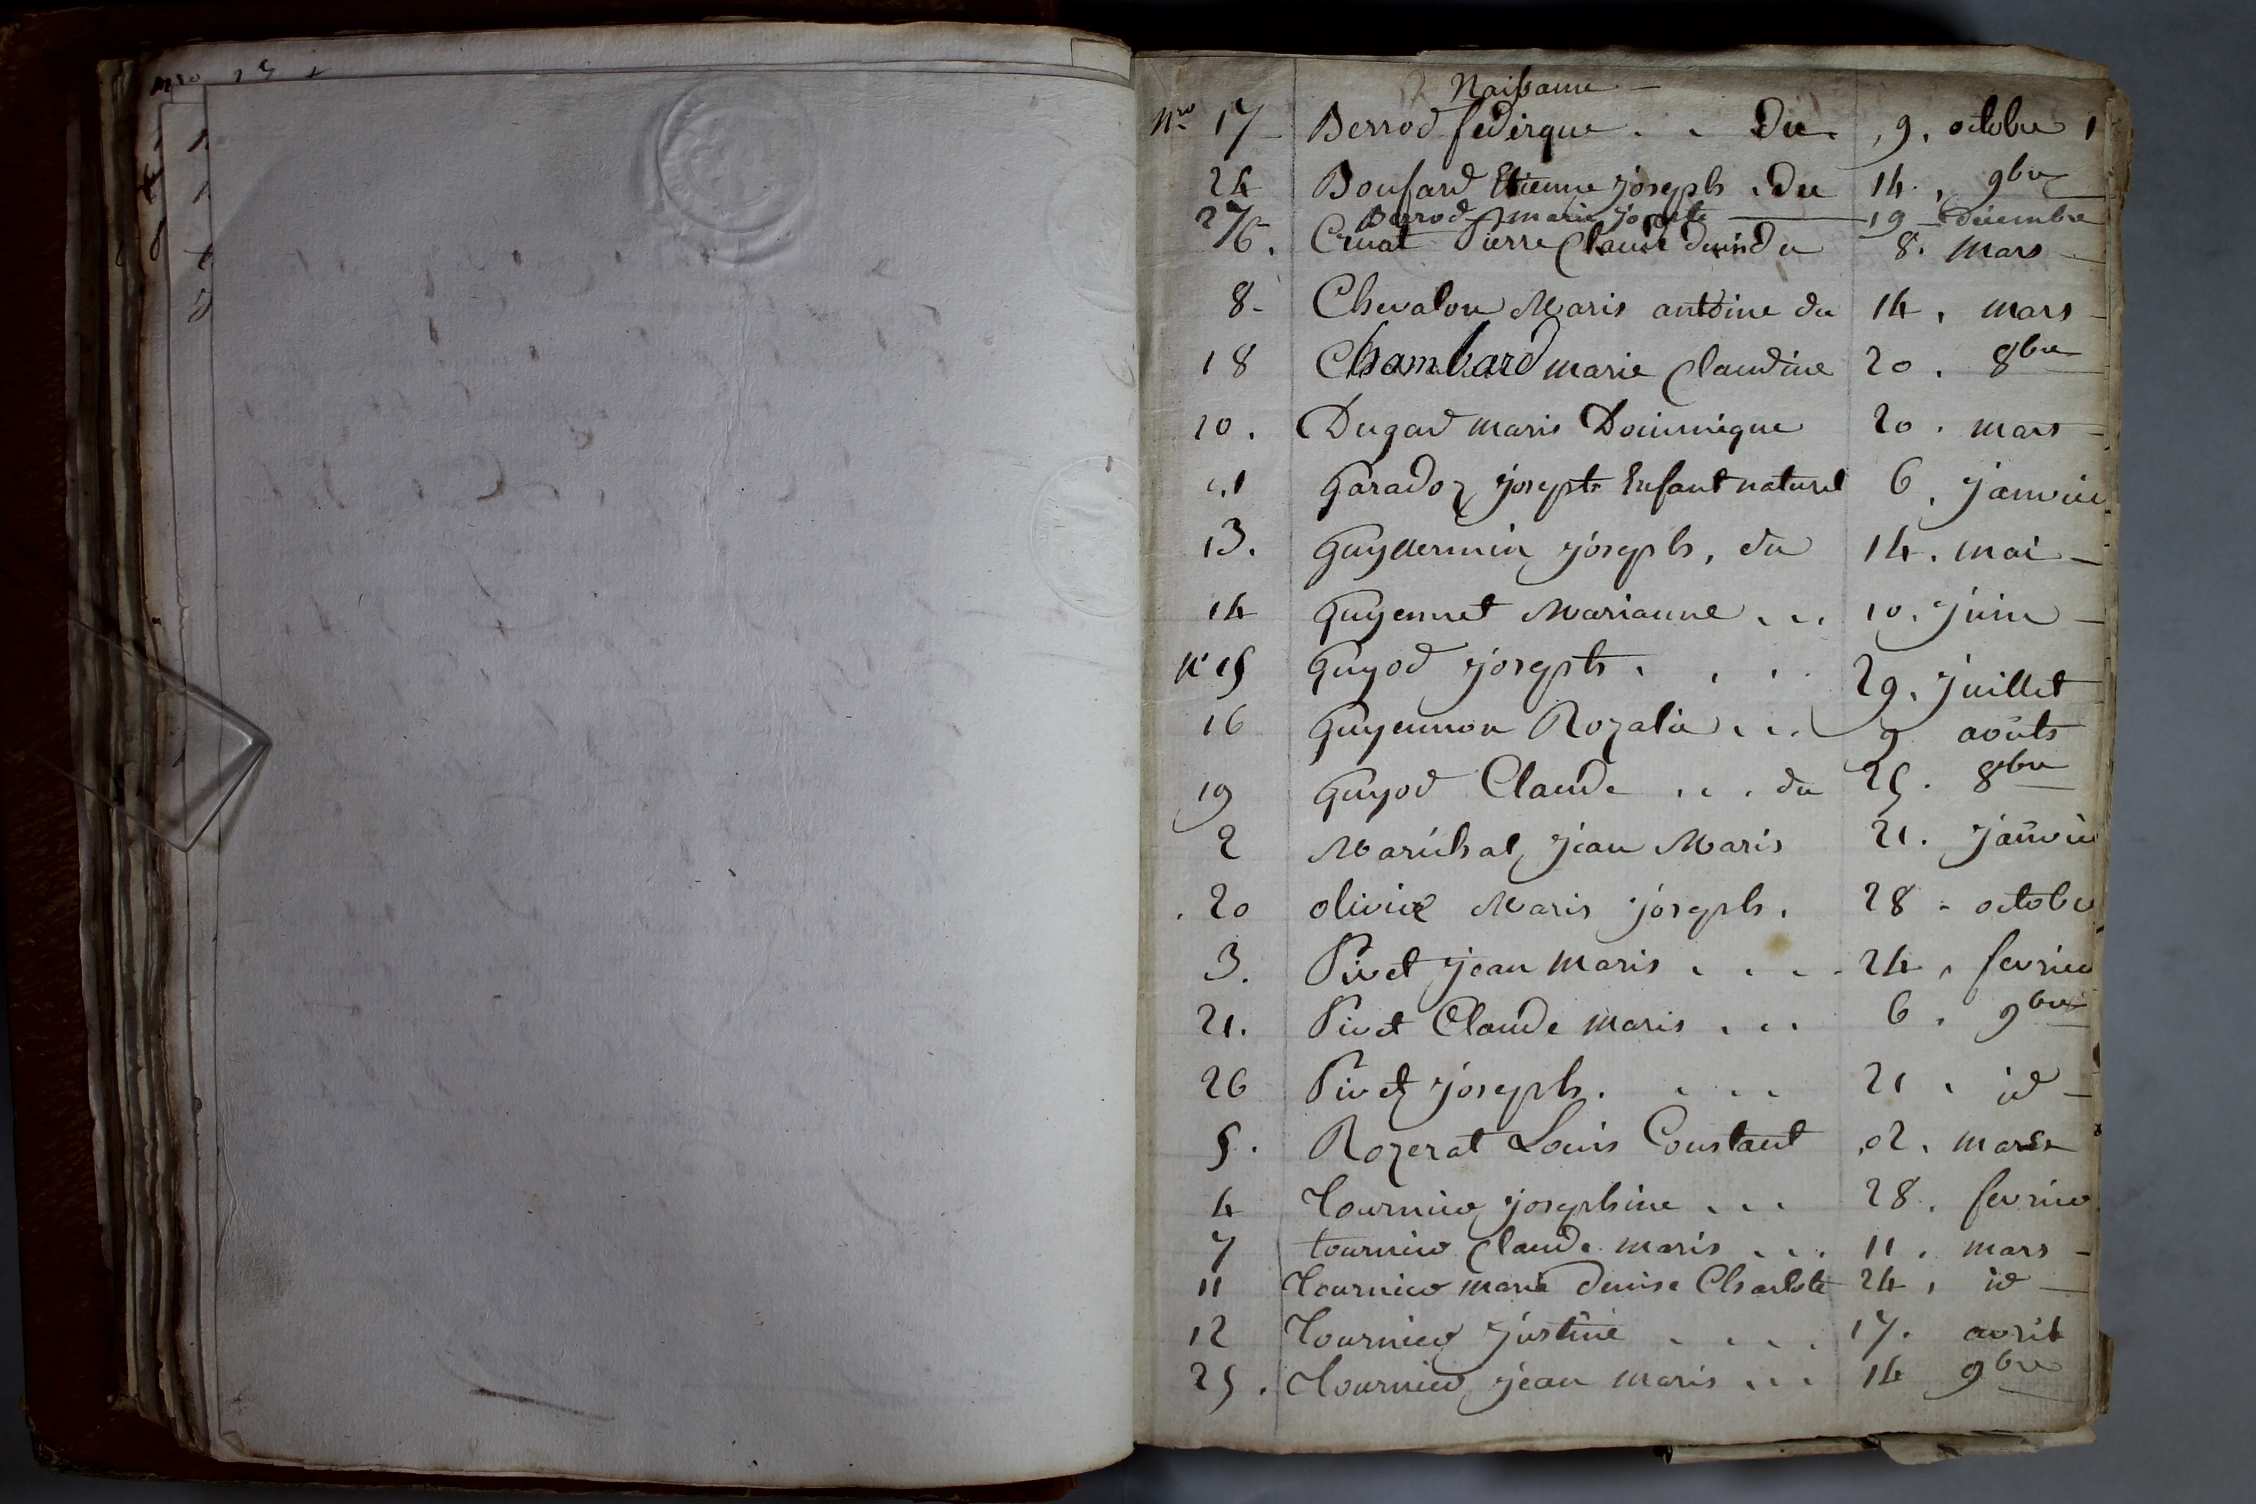 Naissance
Nro 17 Berrod fedirque . . Du 9. octobre 1
24 Boufard Etienne joseph . du 14. 9bre
27 Berrod marie josephte 19 decembre
6. Cruat Pierre Claude du 8. mars
8. Chevalon Marie antoine du 14. mars
18 Chambard marie Claudine 20. 8bre
10. Dugad marie Dominique 20. mars
1 Garadoz joseph Enfant naturel 6. janvier
13. Guyllermin joseph, du 14. mai
14 Guyennet Marianne . . . 10. juin
N° 15 Guyod joseph . . . 29. juillet
16 Guyennon Rozalie . . . 9 aoûts
19 Guyod Claude . . . du 25. 8bre
2 Maréchal jean Marie 21. janvier
20 olivier Marie joseph. 28 - octobre
3. Pivet jean marie . . . 24. fevrier
21. Pivet Claude marie . . . 6. 9bre
26 Pivet joseph. . . . 21. id
5. Rozerat Louis Constant 02. mars
4 Tournier josephine . . . 28. fevrier
7 tournier Claude marie . . . 11. mars
11 Tournier marie denise Charlote 24. id
12 Tournier justine . . . . 17. avril
25. Tournier jean marie . . . 14 9bre